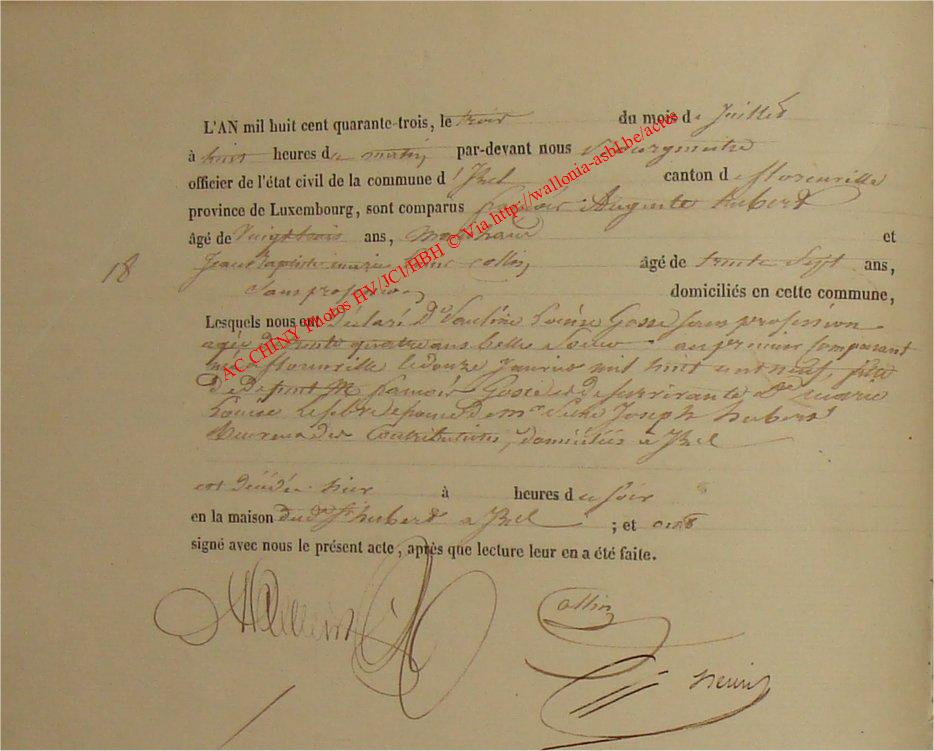 L'AN mil huit cent quarante-trois, le trois du mois de Juillet
à huit heures du matin par-devant nous Bourgmestre
officier de l'état civil de la commune d' Izel canton de florenville
province de Luxembourg, sont comparus françois Auguste hubert
âgé de Vingt trois ans, et
18
Jean Baptiste marie Collin âgé de trente Sept ans,
Sans profession domiciliés en cette commune,
Lesquels nous ont Déclaré que De Pauline Louise Gosse sans profession
agée de trente quatre ans belle Soeur au premier Comparant
née à florenville le douze Janvier mil huit cent neuf, fille
De Defunt Mr françois Gosse et de survivante De marie
Louise Lefebvre épouse de mr Joseph hubert
Receveur des Contributions, domiciliés à Izel
est Décédée hier à heures du soir
en la maison dudt Sr hubert a Izel ; et ont
signé avec nous le présent acte, après que lecture leur en a été faite.
Collin
AC CHINY Photos HV/JCl/HBH © Via http://wallonia-asbl.be/actes